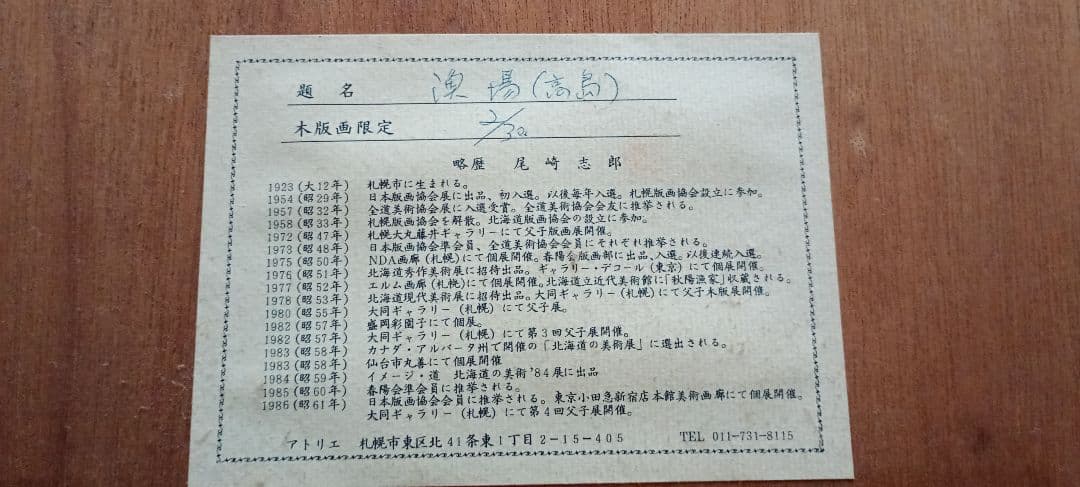 題名 漁場(高島)
木版画限定 2/30
略歴 尾崎志郎
1923(大12年) 札幌市に生まれる。
1954(昭29年) 日本版画協会展に出品、初入選。以後毎年入選。札幌版画協会設立に参加。
1957(昭32年) 全道美術協会展に入選受賞。全道美術協会会友に推挙される。
1958(昭33年) 札幌版画協会を解散。北海道版画協会の設立に参加。
1972(昭47年) 札幌大丸藤井ギャラリーにて父子版画展開催。
1973(昭48年) 日本版画協会準会員、全道美術協会会員にそれぞれ推挙される。
1975(昭50年) NDA画廊(札幌)にて個展開催。春陽会版画部に出品、入選。以後連続入選。
1976(昭51年) 北海道秀作美術展に招待出品。ギャラリー・デコール(東京)にて個展開催。
1977(昭52年) エルム画廊(札幌)にて個展開催。北海道立近代美術館に「秋陽漁家」収蔵される。
1978(昭53年) 北海道現代美術展に招待出品。大同ギャラリー(札幌)にて父子木版展開催。
1980(昭55年) 大同ギャラリー(札幌)にて父子展。
1982(昭57年) 盛岡彩園子にて個展。
1982(昭57年) 大同ギャラリー(札幌)にて第3回父子展開催。
1983(昭58年) カナダ・アルバータ州で開催の「北海道の美術展」に選出される。
1983(昭58年) 仙台市丸善にて個展開催
1984(昭59年) イメージ・道 北海道の美術'84展に出品
1985(昭60年) 春陽会準会員に推挙される。
1986(昭61年) 日本版画協会会員に推挙される。東京小田急新宿店本館美術画廊にて個展開催。
大同ギャラリー(札幌)にて第4回父子展開催。
アトリエ 札幌市東区北41条東1丁目2-15-405 TEL 011-731-8115